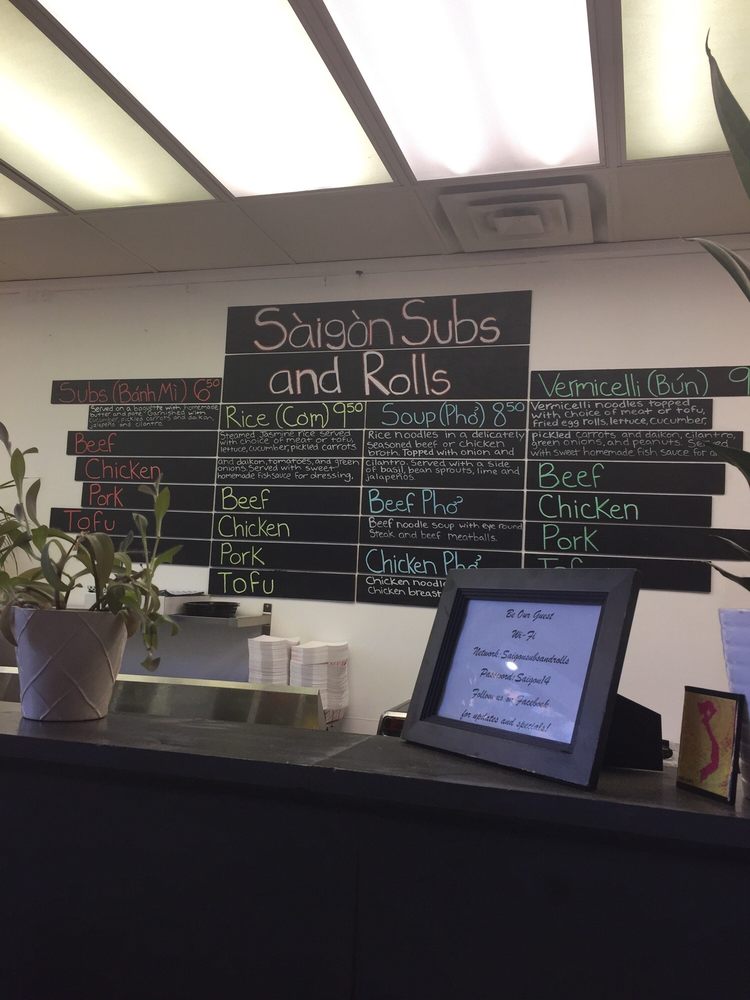 Sàigòn Subs
and Rolls
Subs (Bánh Mì) 6⁵⁰
Served on a baguette with homemade
butter and pate. Garnished with
cucumber, pickled carrots and daikon,
jalapeño and cilantro.
Beef
Chicken
Pork
Tofu
Rice (Cơm) 9⁵⁰
Steamed Jasmine rice served
with choice of meat or tofu,
lettuce, cucumber, pickled carrots
and daikon, tomatoes, and green
onions. Served with sweet
homemade fish sauce for dressing.
Beef
Chicken
Pork
Tofu
Soup (Phở) 8⁵⁰
Rice noodles in a delicately
seasoned beef or chicken
broth. Topped with onion and
cilantro. Served with a side
of basil, bean sprouts, lime and
jalapeños.
Beef Phở
Beef noodle soup with eye round
Steak and beef meatballs.
Chicken Phở
Chicken noodle
Chicken breast
Vermicelli (Bún) 9
Vermicelli noodles topped
with choice of meat or tofu,
fried egg rolls, lettuce, cucumber,
pickled carrots and daikon, cilantro,
green onions, and peanuts. Served
with sweet homemade fish sauce for
Beef
Chicken
Pork
Be Our Guest
Wi-Fi
Network: Saigonsubsandrolls
Password: Saigon14
Follow us on Facebook
for updates and specials!